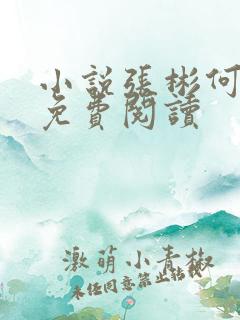 小說張彬何
免費閱讀
激萌小青椒
未任同意禁止轉載